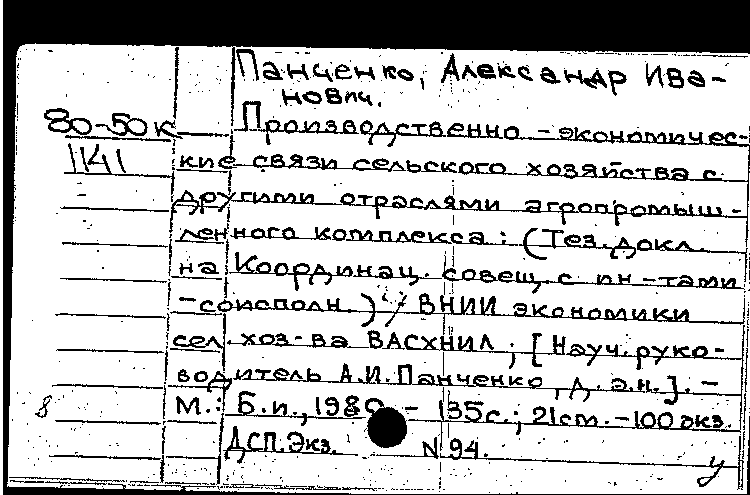 Панченко, Александр Ива-
нович.
80-50к Производственно-экономичес-
1141 кие связи сельского хозяйства с
другими отраслями агропромыш-
ленного комплекса: (Тез. докл.
на Координац. совещ. с ин-тами
-соисполн.) / ВНИИ экономики
сел. хоз-ва ВАСХНИЛ; [Науч. руко-
водитель А.И. Панченко, д. э.н.]. -
8 М.: Б.и., 1980. - 135с.; 21см. - 100 экз.
ДСП. Экз. N 94.
у